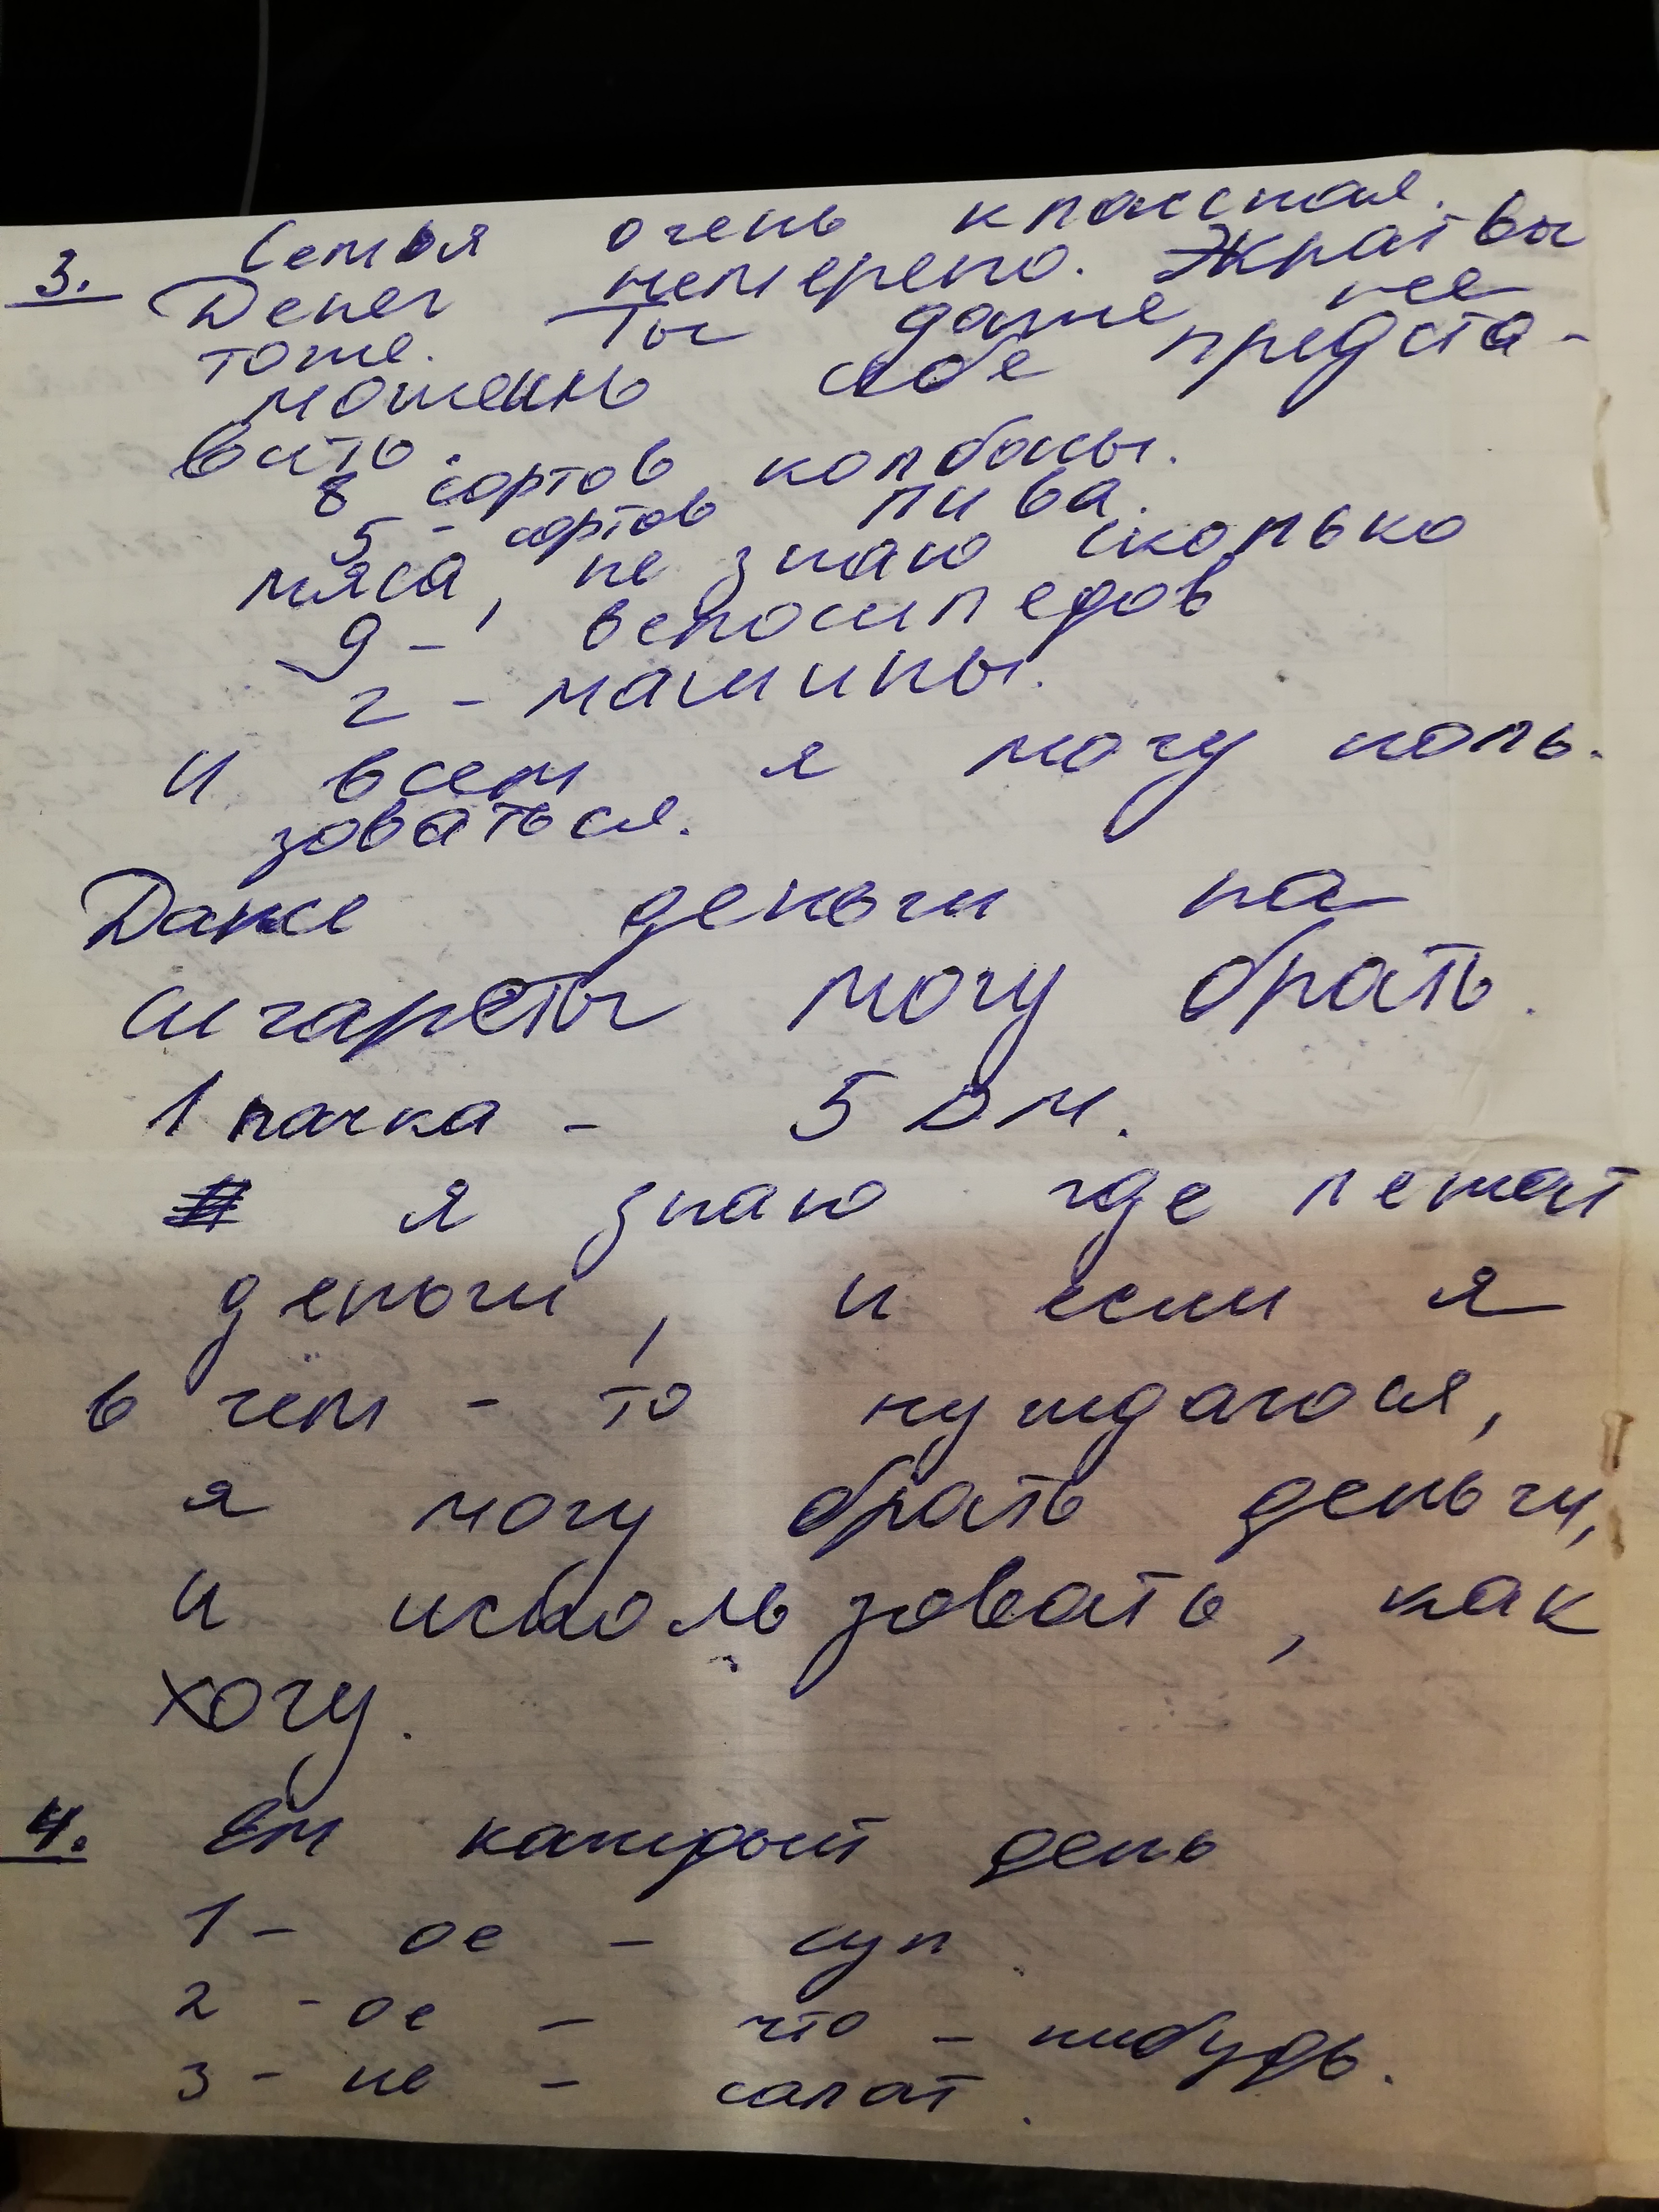 3. Семья очень классная.
Денег немерено. Жратвы
тоже. Ты даже не
можешь себе предста-
вить.
8 сортов колбасы.
5 - сортов пива.
мяса, не знаю сколько
9 - велосипедов
2 - машины.
и всем я могу поль-
зоваться.
Даже деньги на
сигареты могу брать.
1 пачка - 5 DM.
я знаю где лежат
деньги, и если я
в чем - то нуждаюся,
я могу брать деньги,
и использовать, как
хочу.
4. Ем каждый день
1 - ое - суп
2 - ое - что - нибудь.
3 - ие - салат.